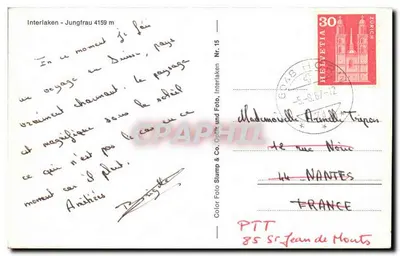 Interlaken - Jungfrau 4159 m
En ce moment je fais
un voyage en Suisse, pays
vraiment charmant. Le paysage
est magnifique sous le soleil
ce qui n'est pas le cas en ce
moment car il pleut.
Amitiés
Brigitte
Color Foto Stamp & Co. Interlaken Nr. 15
30
HELVETIA
ZÜRICH
Mademoiselle
12 rue Noire
44 NANTES
FRANCE
PTT
85 St Jean de Monts
CPArama.com